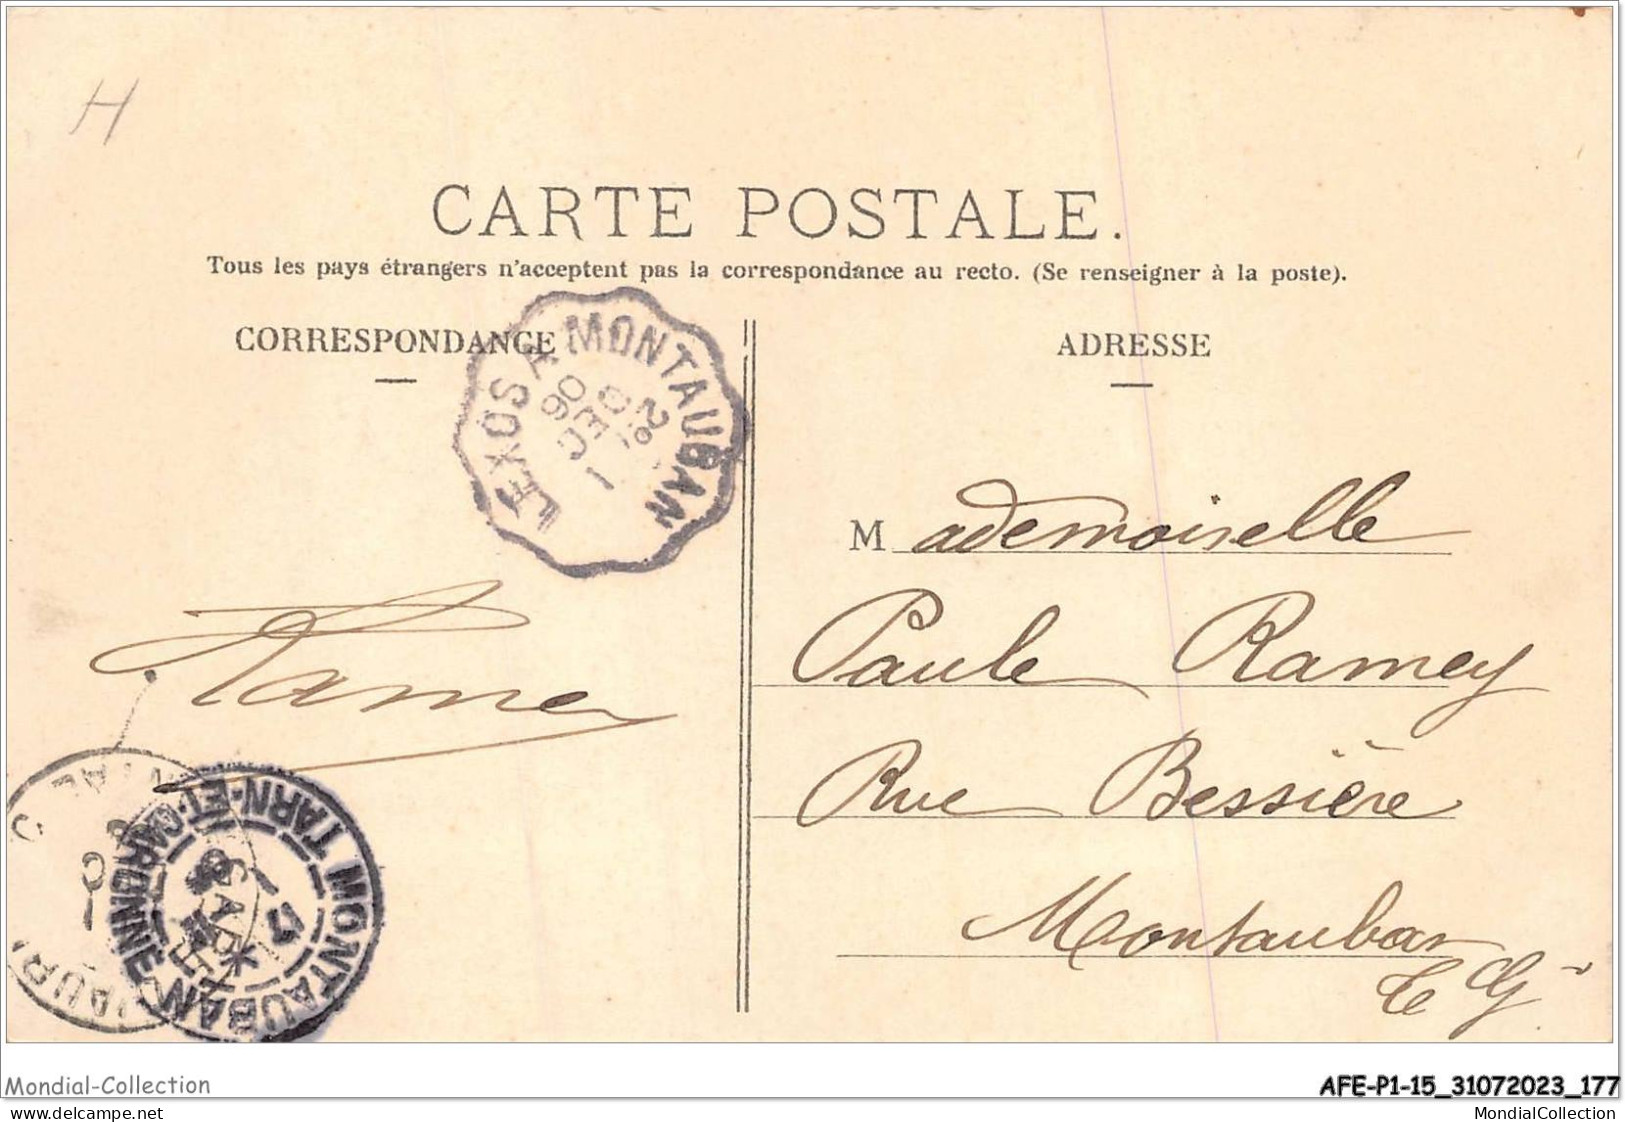 H
CARTE POSTALE.
Tous les pays étrangers n'acceptent pas la correspondance au recto. (Se renseigner à la poste).
CORRESPONDANCE
ADRESSE
LEXOS A MONTAUBAN
2º
DEC
06
Mademoiselle
Paule Ramey
Rue Bessière
Montauban
T G
MONTAUBAN
TARN-ET-GARONNE
Mondial-Collection
AFE-P1-15_31072023_177
MondialCollection